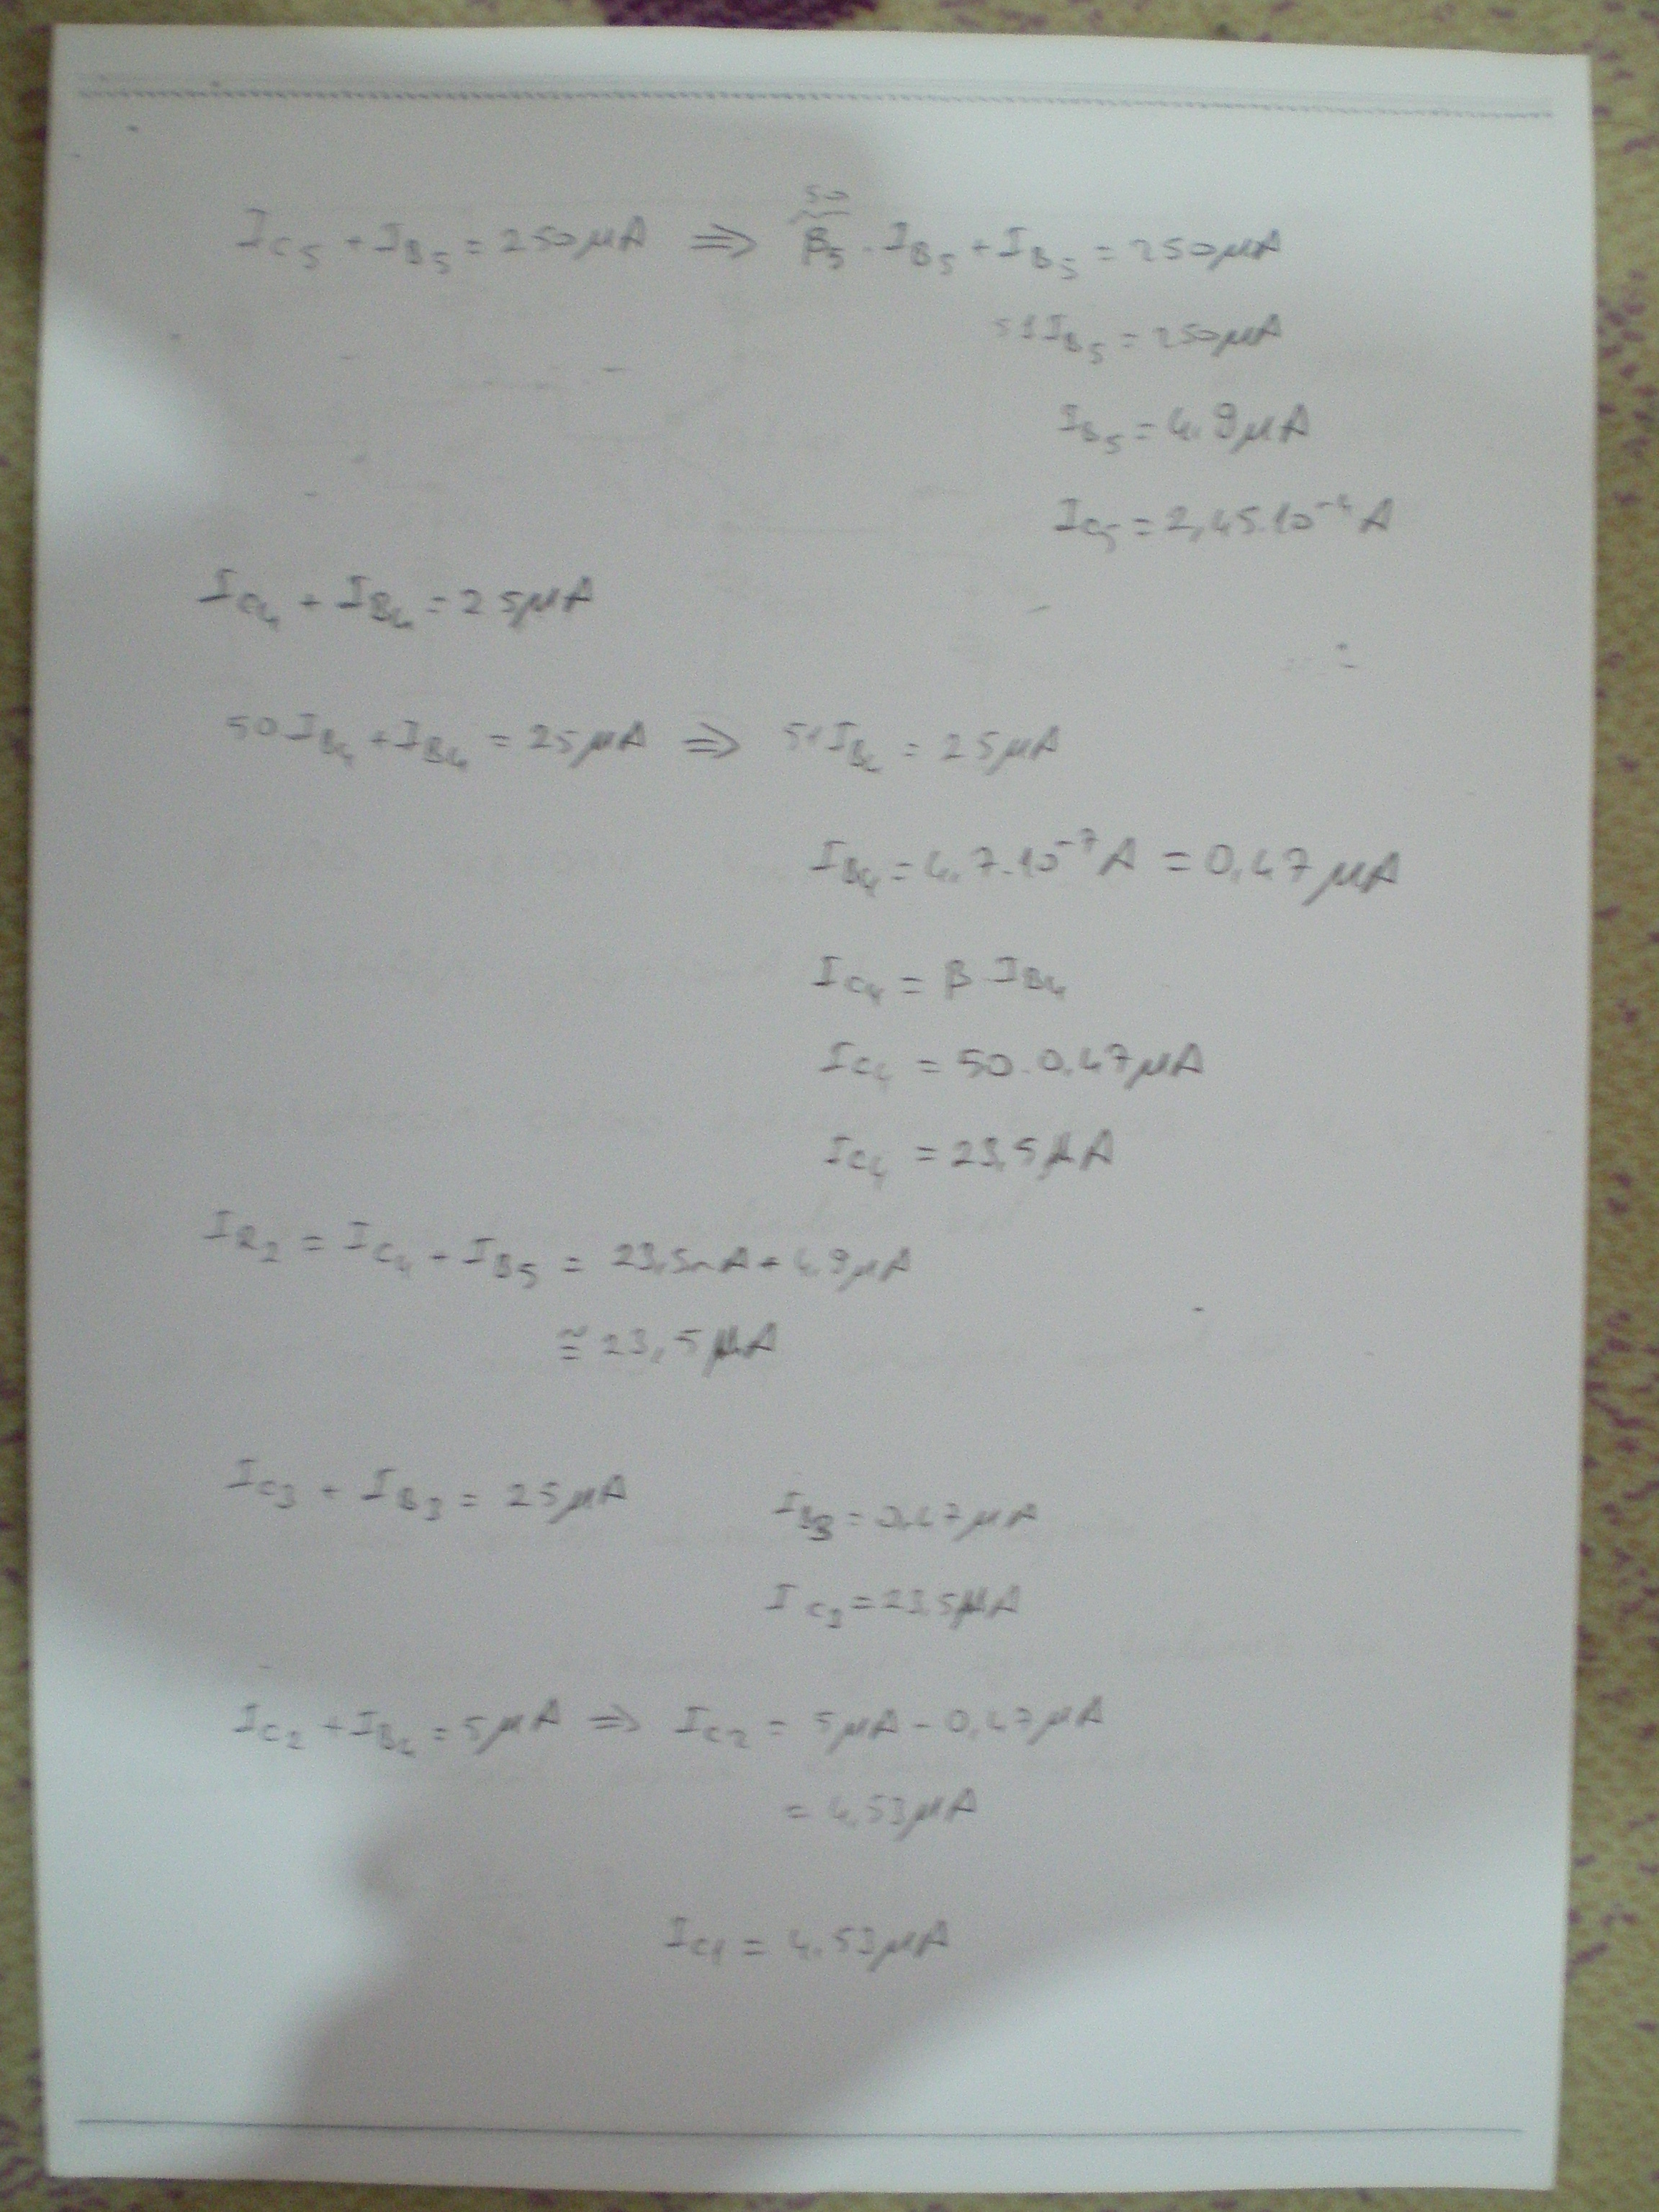 I_C5 + I_B5 = 250 μA ⇒ β5 (50) · I_B5 + I_B5 = 250 μA
51 I_B5 = 250 μA
I_B5 = 4.9 μA
I_C5 = 2,45.10^-4 A
I_C4 + I_B4 = 25 μA
50 I_B4 + I_B4 = 25 μA ⇒ 51 I_B4 = 25 μA
I_B4 = 4.7.10^-7 A = 0,47 μA
I_C4 = β · I_B4
I_C4 = 50.0.47 μA
I_C4 = 23,5 μA
I_R2 = I_C4 + I_B5 = 23,5mA + 4.9 μA
≅ 23,5 μA
I_C3 + I_B3 = 25 μA I_B3 = 0.47 μA
I_C3 = 23.5 μA
I_C2 + I_B4 = 5 μA ⇒ I_C2 = 5 μA - 0,47 μA
= 4.53 μA
I_C1 = 4.53 μA